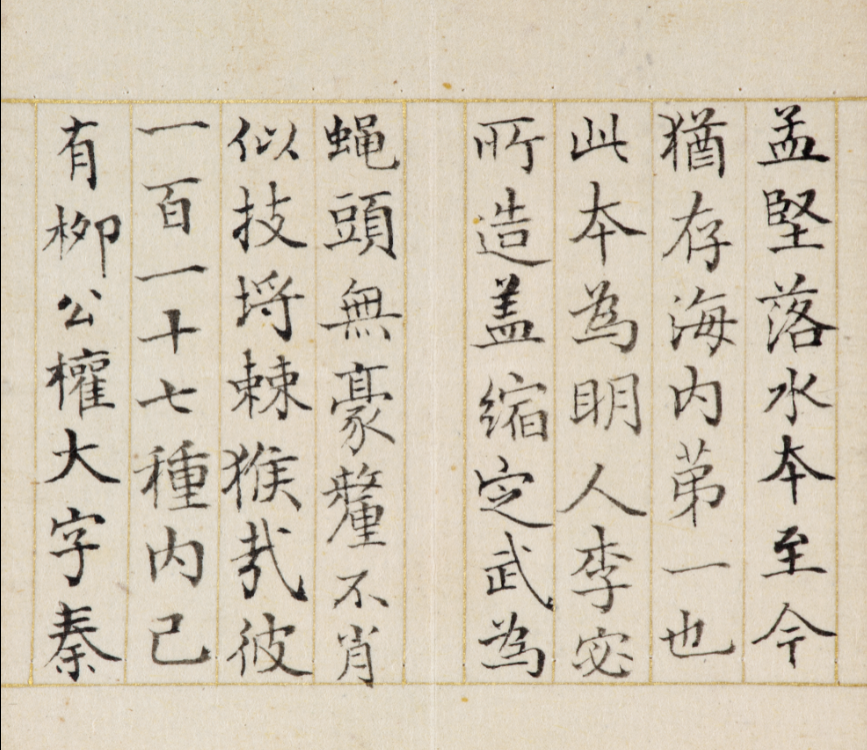 孟堅落水本至今
猶存海内苐一也
此本為明人李宓
所造盖縮定武為
蝇頭無豪釐不肖
似技埒棘猴哉彼
一百一十七種内已
有柳公權大字秦